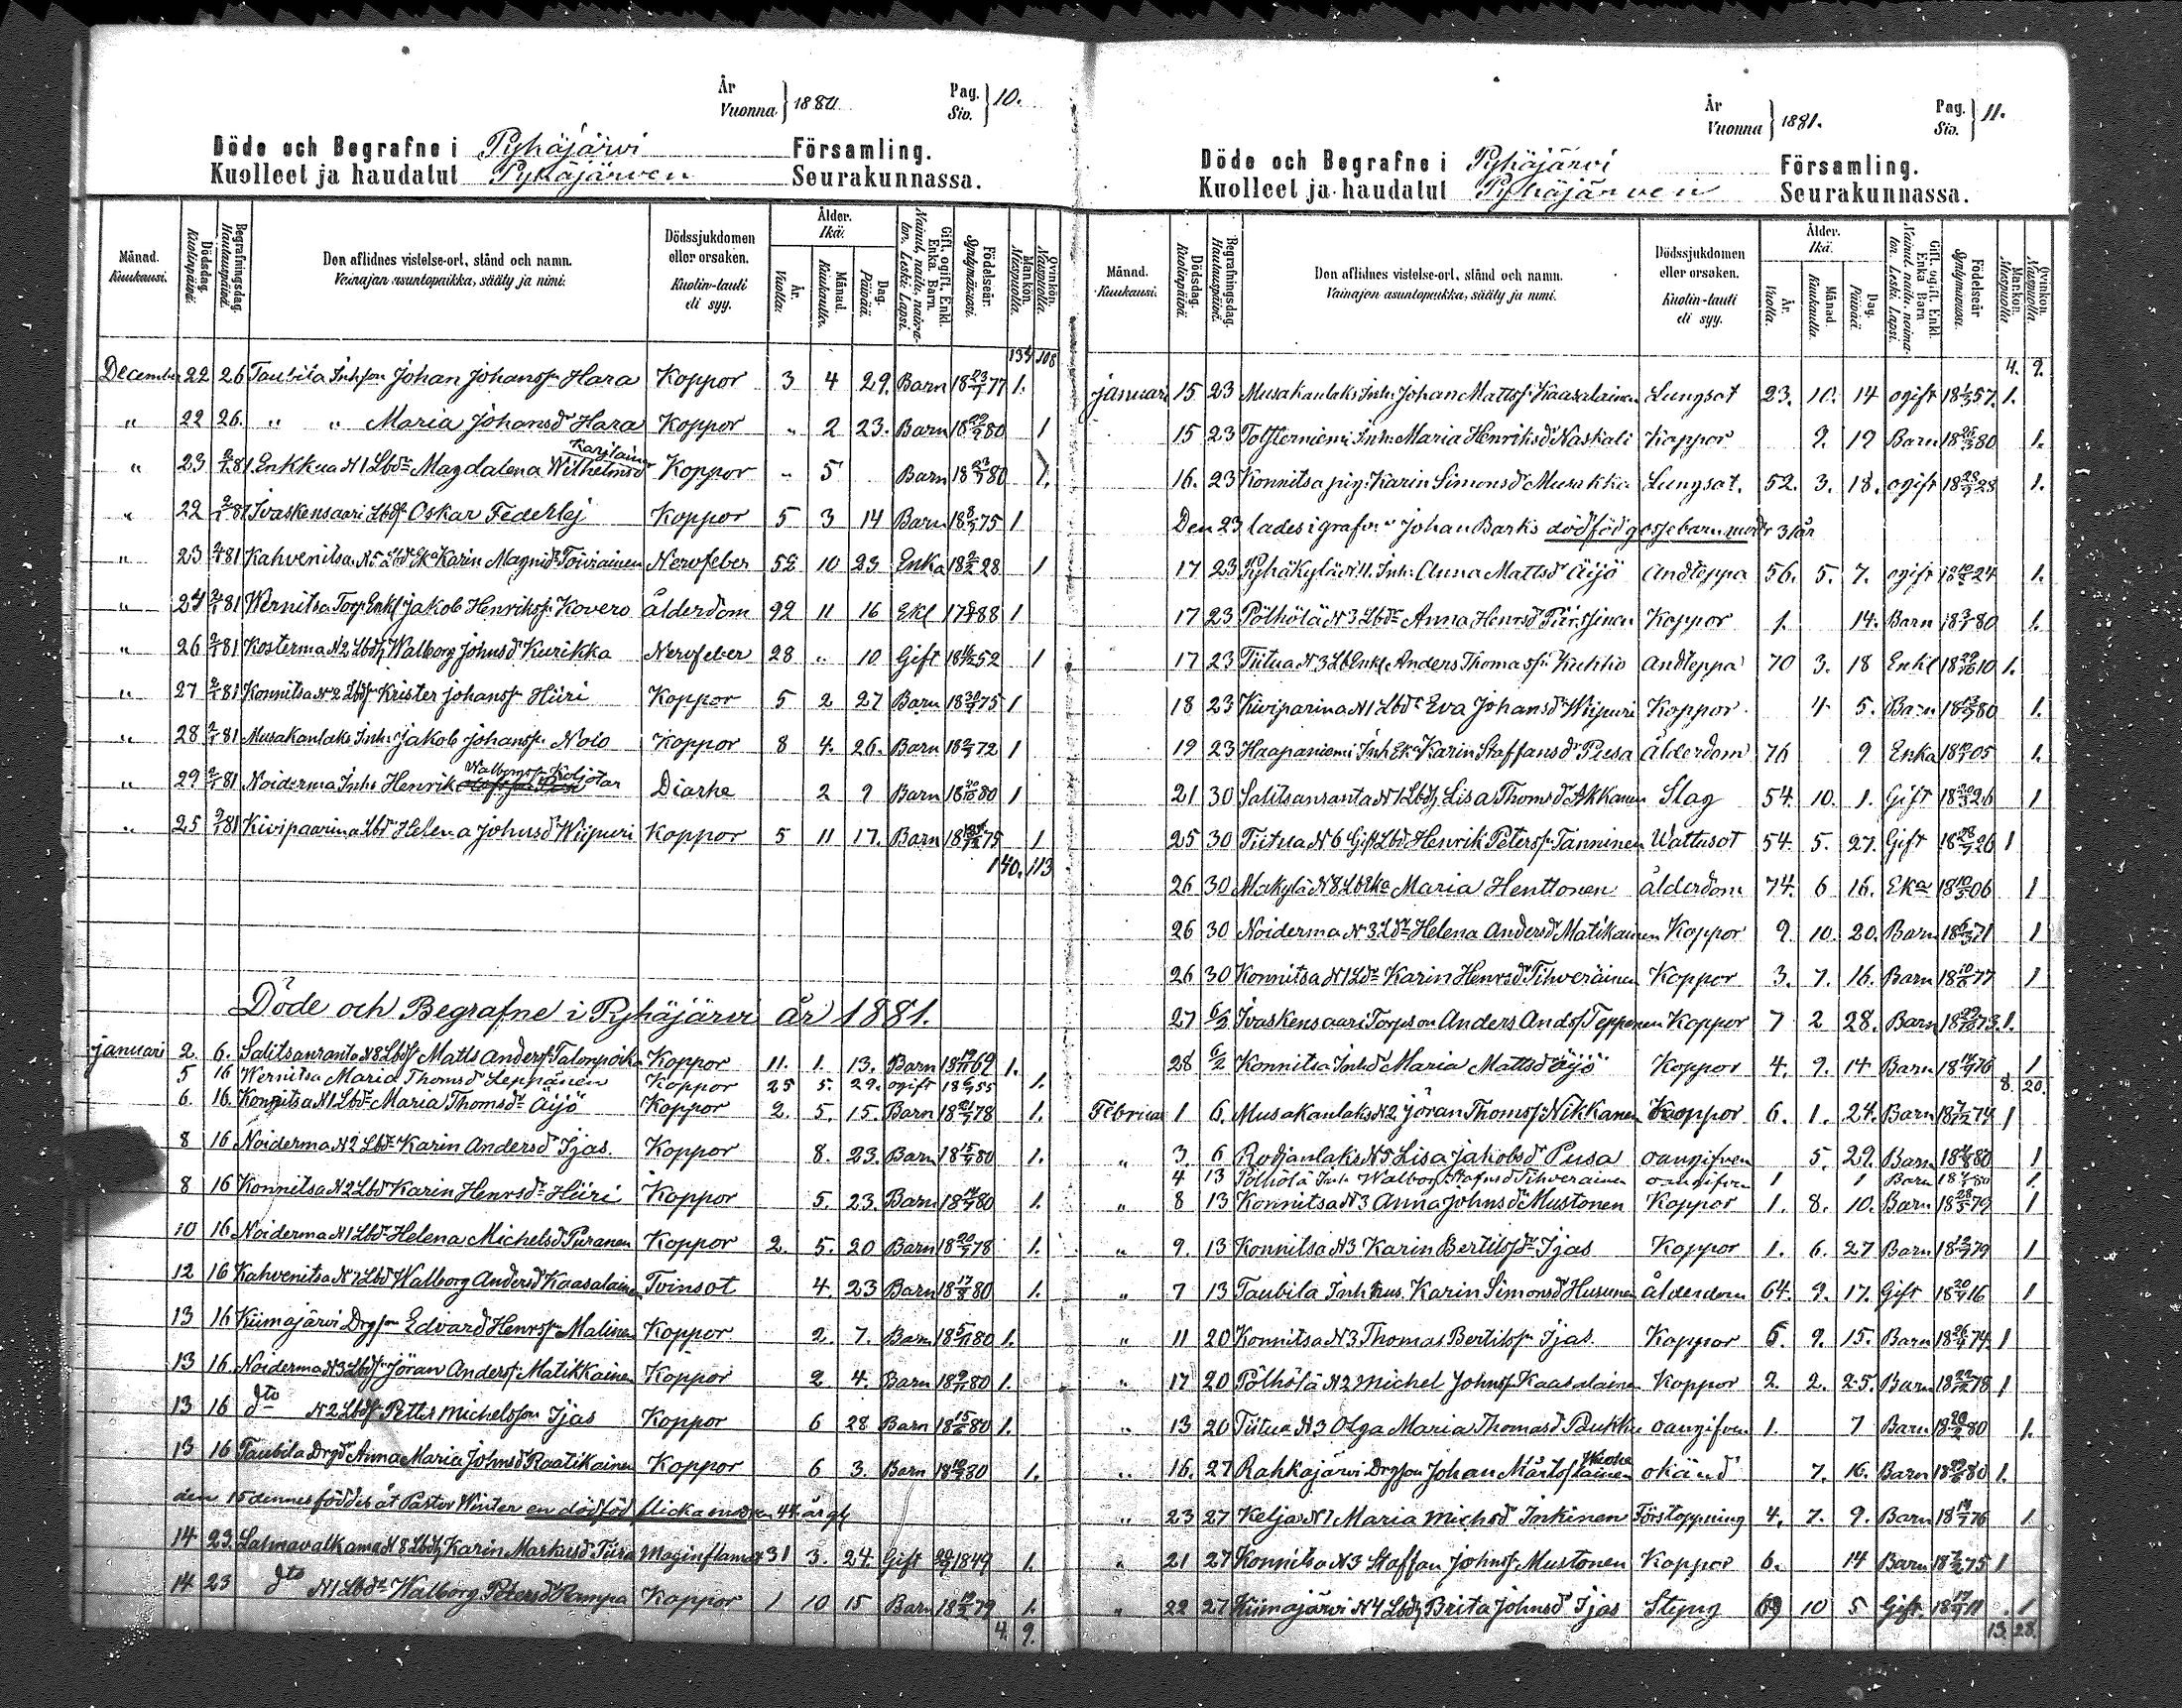 År
Vuonna } 1880.
Pag.
Siv. } 10.
Döde och Begrafne i Pyhäjärvi Församling.
Kuolleet ja haudatut Pyhäjärven Seurakunnassa.
Månad. Kuukausi.
Dödsdag. Kuolinpäivä.
Begrafningsdag. Hautauspäivä.
Den aflidnes vistelse-ort, stånd och namn.
Vainajan asuntopaikka, sääty ja nimi.
Dödssjukdomen eller orsaken.
Kuolin-tauti eli syy.
Ålder. Ikä.
År. Vuotta.
Månad. Kuukautta.
Dag. Päivää.
Gift, ogift, Enkl. Enka. Barn.
Nainut, naitu, naimaton. Leski. Lapsi.
Födelseår. Syntymävuosi.
Mankön. Miespuolia.
Qvinkön. Naispuolia.
134 108
December 22 26 Taubila Inh.son Johan Johanss. Hara Koppor 3 4 29. Barn 18 23/7 77 1.
" 22 26. " " Maria Johansdr Hara Koppor " 2 23. Barn 18 29/9 80 1
" 23 2/1 81 Enkkua N1 Lbdr Magdalena Wilhelmsd Karjlain Koppor " 5 Barn 18 23/7 80 1.
" 22 2/1 81 Ivaskensaari Lbdss Oskar Federlej Koppor 5 3 14 Barn 18 8/9 75 1
" 23 2/1 81 Kahvenitsa N5 Lbd Eka Karin Magnid Toiviainen Nervfeber 52 10 23 Enka 18 2/2 28 1
" 24 2/1 81 Wernitsa Torp Enkl Jakob Henrikss. Kovero ålderdom 92 11 16 Ekl 17 88 1
" 26 2/1 81 Kosterma N2 Lbdh Walborg Johnsd Kurikka Nervfeber 28 " 10 Gift 18 16/12 52 1
" 27 2/1 81 Konnitsa N2 Lbdss Krister Johanss. Hiiri Koppor 5 2 27 Barn 18 30/9 75 1
" 28 2/1 81 Musakanlaks Inh. Jakob Johanss. Noio Koppor 8 4. 26. Barn 18 72 1
" 29 2/1 81 Noiderma Inh. Henrik Walborgs. Koljotar Diarhe 2 9 Barn 18 20/10 80 1
" 25 2/1 81 Kivipaarina Lbd Helena Johnsd Wiipuri Koppor 5 11 17. Barn 18 75 1
140. 113
Döde och Begrafne i Pyhäjärvi år 1881.
Januari 2. 6. Salitsanranta N8 Lbdss Matts Anderss. Talonpoika Koppor 11. 1. 13. Barn 18 19/11 69 1.
5 16 Wernitsa Maria Thomsd Leppänen Koppor 25 5. 29. ogift 18 55 1.
6. 16. Konnitsa N1 Lbdr Maria Thomsdr Äijö Koppor 2. 5. 15. Barn 18 21/7 78 1.
8 16 Noiderma N2 Lbdr Karin Andersd Ijas. Koppor 8. 23. Barn 18 15/4 80 1.
8 16 Konnitsa N2 Lbd Karin Henrsdr Hiiri Koppor 5. 23. Barn 18 80 1.
10 16 Noiderma N1 Lbdr Helena Michelsd Puranen Koppor 2. 5. 20 Barn 18 20/7 78 1.
12 16 Kahvenitsa N2 Lbd Walborg Andersd Kaasalainen Tvinsot 4. 23 Barn 18 17/8 80 1.
13 16 Kiimajärvi Drgson Edvard Henrss. Malinen Koppor 2. 7. Barn 18 5/11 80 1.
13 16. Noiderma N3 Lbdss Jöran Anderss. Matikkainen Koppor 2 4. Barn 18 9/11 80 1.
13 16 dto N2 Lbdss Petter Michelsson Ijas Koppor 6 28 Barn 18 15/6 80 1.
13 16 Taubila Drgd Anna Maria Johnsd Raatikainen Koppor 6 3. Barn 18 10/7 80 1.
den 15 dennes föddes åt Pastor Winter en dödföd flicka modren 44 år gl
14 23. Lahnavalkama N8 Lbdh Karin Markusd Tiira Maginflamat 31 3. 24. Gift 1849 1.
14 23 dto N1 Lbdr Walborg Petersd Rampa Koppor 1 10 15 Barn 18 79 1.
4. 9.
År
Vuonna } 1881.
Pag.
Siv. } 11.
Döde och Begrafne i Pyhäjärvi Församling.
Kuolleet ja haudatut Pyhäjärven Seurakunnassa.
Månad. Kuukausi.
Dödsdag. Kuolinpäivä.
Begrafningsdag. Hautauspäivä.
Den aflidnes vistelse-ort, stånd och namn.
Vainajan asuntopaikka, sääty ja nimi.
Dödssjukdomen eller orsaken.
Kuolin-tauti eli syy.
Ålder. Ikä.
År. Vuotta.
Månad. Kuukautta.
Dag. Päivää.
Gift, ogift, Enkl. Enka Barn
Nainut, naitu, naimaton. Leski. Lapsi.
Födelseår Syntymävuosi.
Mankön. Miespuolia
Qvinkön. Naispuolia.
4. 9.
Januari 15 23 Musakanlaks Inh. Johan Mattss. Kaasalainen Lungsot 23. 10. 14 ogift 18 1/3 57. 1.
15 23 Inh. Maria Henriksd Naskali Koppor 9. 19 Barn 18 80 1.
16. 23 Konnitsa pig. Karin Simonsd Musakka Lungsot. 52. 3. 18. ogift 18 28/9 28 1.
Den 23 lades i grafven Johan Barks dödföd gossebarn modr 31 år
17 23 Pyhäkylä N11. Inh. Anna Mattsd Äijö Andteppa 56. 5. 7. ogift 18 24 1.
17 23 Pölhölä N3 Lbdr Anna Henrsd Koppor 1. 14. Barn 18 3/1 80 1.
17 23 Tiitua N3 Lb Enkl Anders Thomass. Kukko andteppa 70 3. 18 Enkl 18 10 1.
18 23 Kiviparina N1 Lbdr Eva Johansdr Wiipuri Koppor. 4 5. Barn 18 80 1.
19 23 Haapaniemi Inh Eka Karin Staffansdr Pusa ålderdom 76 9 Enka 18 05 1.
21 30 Salitsanranta N1 Lbdh Lisa Thomsd Akkanen Slag 54. 10. 1. Gift 18 20/3 26 1
25 30 Tiitua N6 Gift Lbd Henrik Peterss. Tanninen Wattusot 54. 5. 27. Gift 18 28/7 26 1
26 30 Makylä N8 Lb Eka Maria Henttonen ålderdom 74. 6 16. Eka 18 06 1
26 30 Noiderma N3 Ldr Helena Andersd Matikainen Koppor 9. 10. 20. Barn 18 6/3 71 1
26 30 Konnitsa N1 Ldr Karin Henrsd Tihveräinen Koppor 3. 7. 16. Barn 18 10/6 77 1
27 6/2 Ivaskensaari Torpson Anders Andss Tepponen Koppor 7 2 28. Barn 18 73. 1.
28 6/2 Konnitsa Inhd Maria Mattsd Äijö Koppor 4. 9. 14 Barn 18 14/4 76 1
8. 20.
Februari 1 6. Musakanlaks N2 Jöran Thomss. Nikkanen Koppor 6. 1. 24. Barn 18 7/12 74 1
" 3 6 Rodjanlaks N5 Lisa Jakobsd Pusa oangifven 5. 29. Barn 18 80 1
4 13 Pölhölä Inh Walborg Stafnsd Tihverainen oangifven 1 1 Barn 18 80 1.
" 8 13 Konnitsa N3 Anna Johnsd Mustonen Koppor 1. 8. 10. Barn 18 28/5 79 1
" 9. 13 Konnitsa N3 Karin Bertilssdr Ijas Koppor 1. 6. 27 Barn 18 12/7 79 1
" 7 13 Taubila Inh hus. Karin Simonsd Husunen ålderdom 64. 9. 17. Gift 18 20/4 16 1
" 11 20 Konnitsa N3 Thomas Bertilss. Ijas. Koppor 6. 9. 15. Barn 18 26/4 74. 1
" 17 20 Pölhölä N2 Michel Johnss. Kaasalainen Koppor 2. 2. 25. Barn 18 22/12 78 1
" 13 20 Tiitua N3 Olga Maria Thomasd Paukku oangifven 1. 7 Barn 18 80 1.
" 16. 27 Rahkajärvi Drgson Johan Mårtss. okänd 7. 16. Barn 18 80 1.
" 23 27 Kelja N7 Maria Michsd Inkinen Förstoppning 4. 7. 9. Barn 18 14/7 76 1
" 21 27 Konnitsa N3 Staffan Johnss. Mustonen Koppor 6. 14 Barn 18 7/2 75 1
" 22 27 Kiimajärvi N4 Lbdh Brita Johnsd Ijas Styng 69 10 5 Gift. 18 17/4 11 1
13. 28.